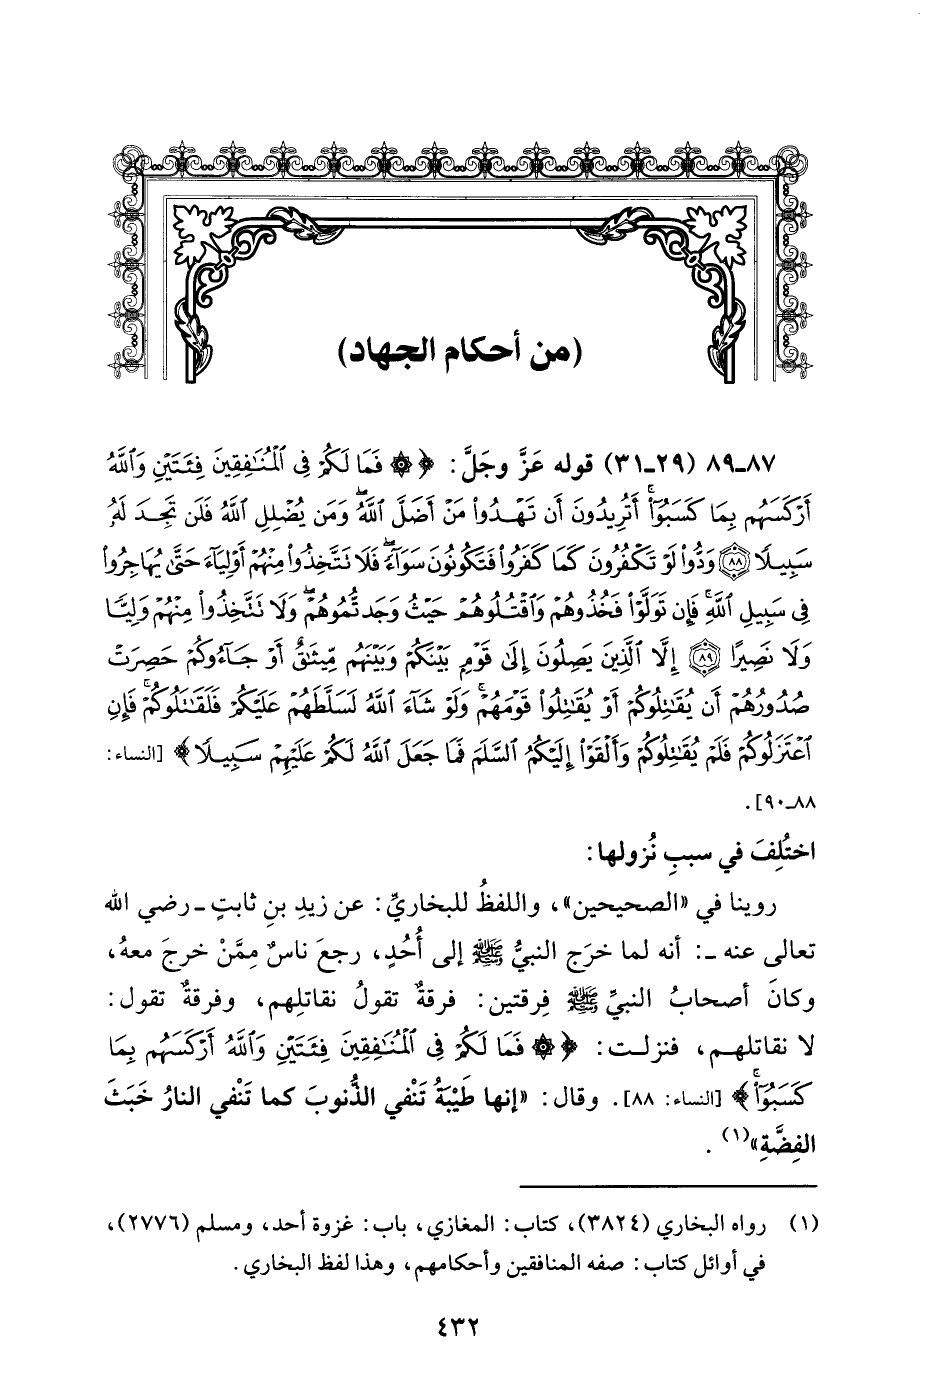 (من أحكام الجهاد)
٨٧ـ٨٩ (٢٩ـ٣١) قوله عَزَّ وجَلَّ: ﴿۞ فَمَا لَكُمْ فِى ٱلْمُنَٰفِقِينَ فِئَتَيْنِ وَٱللَّهُ
أَرْكَسَهُم بِمَا كَسَبُوٓا۟ۚ أَتُرِيدُونَ أَن تَهْدُوا۟ مَنْ أَضَلَّ ٱللَّهُۖ وَمَن يُضْلِلِ ٱللَّهُ فَلَن تَجِدَ لَهُۥ
سَبِيلًا ﴿٨٨﴾ وَدُّوا۟ لَوْ تَكْفُرُونَ كَمَا كَفَرُوا۟ فَتَكُونُونَ سَوَآءًۖ فَلَا تَتَّخِذُوا۟ مِنْهُمْ أَوْلِيَآءَ حَتَّىٰ يُهَاجِرُوا۟
فِى سَبِيلِ ٱللَّهِۚ فَإِن تَوَلَّوْا۟ فَخُذُوهُمْ وَٱقْتُلُوهُمْ حَيْثُ وَجَدتُّمُوهُمْۖ وَلَا تَتَّخِذُوا۟ مِنْهُمْ وَلِيًّا
وَلَا نَصِيرًا ﴿٨٩﴾ إِلَّا ٱلَّذِينَ يَصِلُونَ إِلَىٰ قَوْمٍۭ بَيْنَكُمْ وَبَيْنَهُم مِّيثَٰقٌ أَوْ جَآءُوكُمْ حَصِرَتْ
صُدُورُهُمْ أَن يُقَٰتِلُوكُمْ أَوْ يُقَٰتِلُوا۟ قَوْمَهُمْۚ وَلَوْ شَآءَ ٱللَّهُ لَسَلَّطَهُمْ عَلَيْكُمْ فَلَقَٰتَلُوكُمْۚ فَإِنِ
ٱعْتَزَلُوكُمْ فَلَمْ يُقَٰتِلُوكُمْ وَأَلْقَوْا۟ إِلَيْكُمُ ٱلسَّلَمَ فَمَا جَعَلَ ٱللَّهُ لَكُمْ عَلَيْهِمْ سَبِيلًا﴾ [النساء:
٨٨ـ٩٠].
اختُلِفَ في سببِ نُزولها:
روينا في «الصحيحين»، واللفظُ للبخاريِّ: عن زيدِ بنِ ثابتٍ ـ رضي الله
تعالى عنه ـ: أنه لما خرَج النبيُّ ﷺ إلى أُحُدٍ، رجعَ ناسٌ مِمَّنْ خرجَ معهُ،
وكانَ أصحابُ النبيِّ ﷺ فِرقتين: فرقةٌ تقولُ نقاتلِهم، وفرقةٌ تقول:
لا نقاتلهم، فنزلت: ﴿۞ فَمَا لَكُمْ فِى ٱلْمُنَٰفِقِينَ فِئَتَيْنِ وَٱللَّهُ أَرْكَسَهُم بِمَا
كَسَبُوٓا۟ۚ﴾ [النساء: ٨٨]. وقال: «إنها طَيْبَةُ تَنْفي الذُّنوبَ كما تَنْفي النارُ خَبَثَ
الفِضَّةِ»(١).
(١) رواه البخاري (٣٨٢٤)، كتاب: المغازي، باب: غزوة أحد، ومسلم (٢٧٧٦)،
في أوائل كتاب: صفه المنافقين وأحكامهم، وهذا لفظ البخاري.
٤٣٢